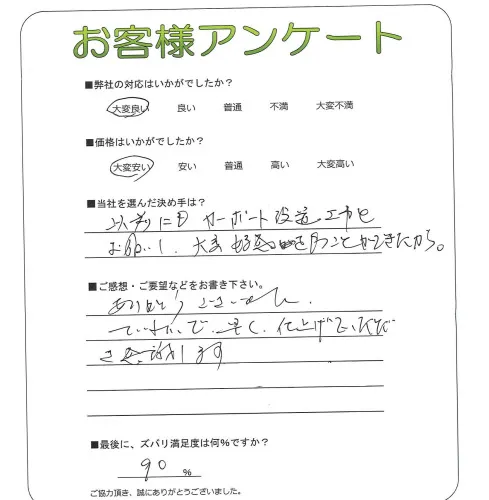 お客様アンケート
■弊社の対応はいかがでしたか？
大変良い 良い 普通 不満 大変不満
■価格はいかがでしたか？
大変安い 安い 普通 高い 大変高い
■当社を選んだ決め手は？
以前にも カーポート設置工事を
お願いし、大変 好感 を持つことができたから。
■ご感想・ご要望などをお書き下さい。
ありがとうございました。
ていねいで、早く、仕上げていただき
感謝します
■最後に、ズバリ満足度は何％ですか？
90 ％
ご協力頂き、誠にありがとうございました。